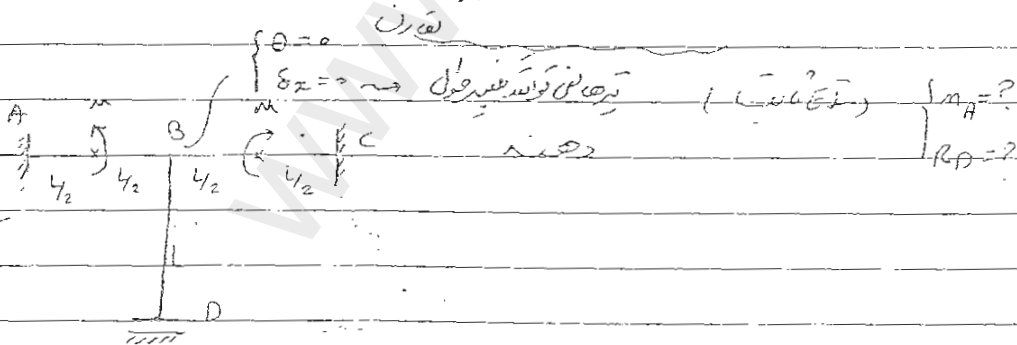 تقارن
θ = 0
δx = 0 → تیرها نمی توانند تغییر طول
دهند
M_A = ?
R_D = ?
A M B M C
L/2 L/2 L/2 L/2
L
D
www